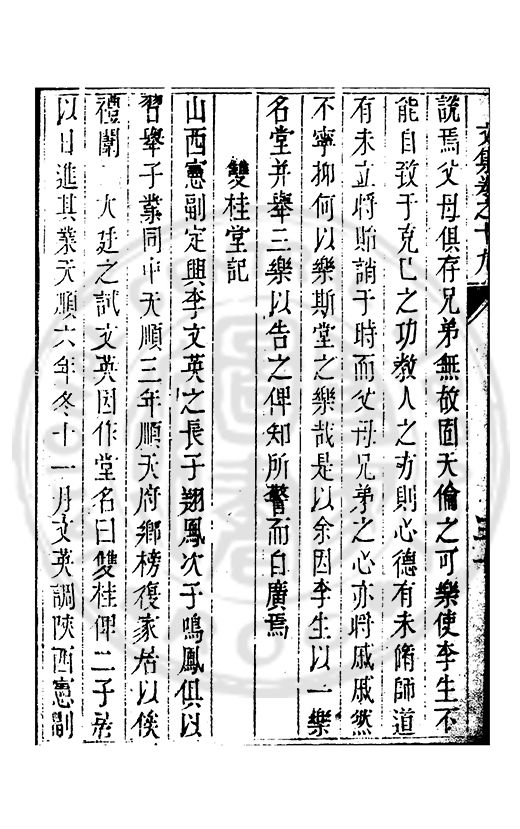 文集卷之十九
說焉父母俱存兄弟無故固天倫之可樂使李生不
能自致于克己之功教人之方則心德有未脩師道
有未立將貽誚于時而父母兄弟之心亦將戚戚然
不寧抑何以樂斯堂之樂哉是以余因李生以一樂
名堂并舉三樂以告之俾知所警而自廣焉
雙桂堂記
山西憲副定興李文英之長子翔鳳次子鳴鳳俱以
習舉子業同中天順三年順天府鄉榜復家居以俟
禮闈 大廷之試文英因作堂名曰雙桂俾二子居
以日進其業天順六年冬十一月文英調陝西憲副